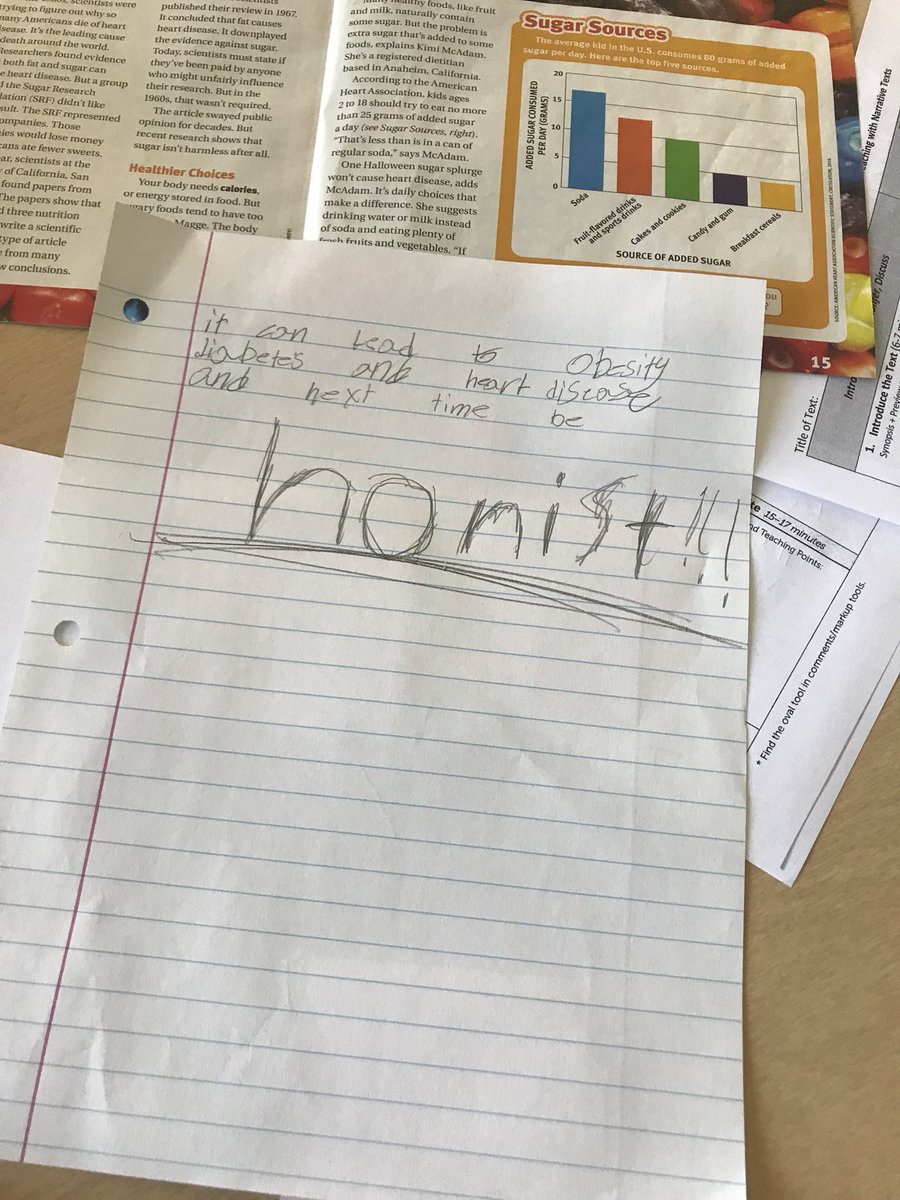 trying to figure out why so
many Americans die of heart
disease. It's the leading cause
death around the world.
Researchers found evidence
both fat and sugar can
heart disease. But a group
the Sugar Research
(SRF) didn't like
result. The SRF represented
companies. Those
would lose money
ate fewer sweets.
scientists at the
of California, San
found papers from
The papers show that
three nutrition
write a scientific
type of article
from many
conclusions.
published their review in 1967.
It concluded that fat causes
heart disease. It downplayed
the evidence against sugar.
Today, scientists must state if
they've been paid by anyone
who might unfairly influence
their research. But in the
1960s, that wasn't required.
The article swayed public
opinion for decades. But
recent research shows that
sugar isn't harmless after all.
Healthier Choices
Your body needs calories,
or energy stored in food. But
sugary foods tend to have too
Magge. The body
healthy foods, like fruit
and milk, naturally contain
some sugar. But the problem is
extra sugar that's added to some
foods, explains Kimi McAdam.
She's a registered dietitian
based in Anaheim, California.
According to the American
Heart Association, kids ages
2 to 18 should try to eat no more
than 25 grams of added sugar
a day (see Sugar Sources, right).
"That's less than is in a can of
regular soda," says McAdam.
One Halloween sugar splurge
won't cause heart disease, adds
McAdam. It's daily choices that
make a difference. She suggests
drinking water or milk instead
of soda and eating plenty of
fresh fruits and vegetables. "If
Sugar Sources
The average kid in the U.S. consumes 80 grams of added
sugar per day. Here are the top five sources.
ADDED SUGAR CONSUMED
PER DAY (GRAMS)
20
15
10
5
0
Soda
Fruit-flavored drinks
and sports drinks
Cakes and cookies
Candy and gum
Breakfast cereals
SOURCE OF ADDED SUGAR
15
it can lead to Obesity
diabetes and heart disease
and next time be
honist!!!
Teaching with Narrative Texts
Discuss
1. Introduce the Text (6-7
Synopsis + Preview
Title of Text:
Intro
15-17 minutes
Teaching Points:
* Find the oval tool in comments/markup tools.